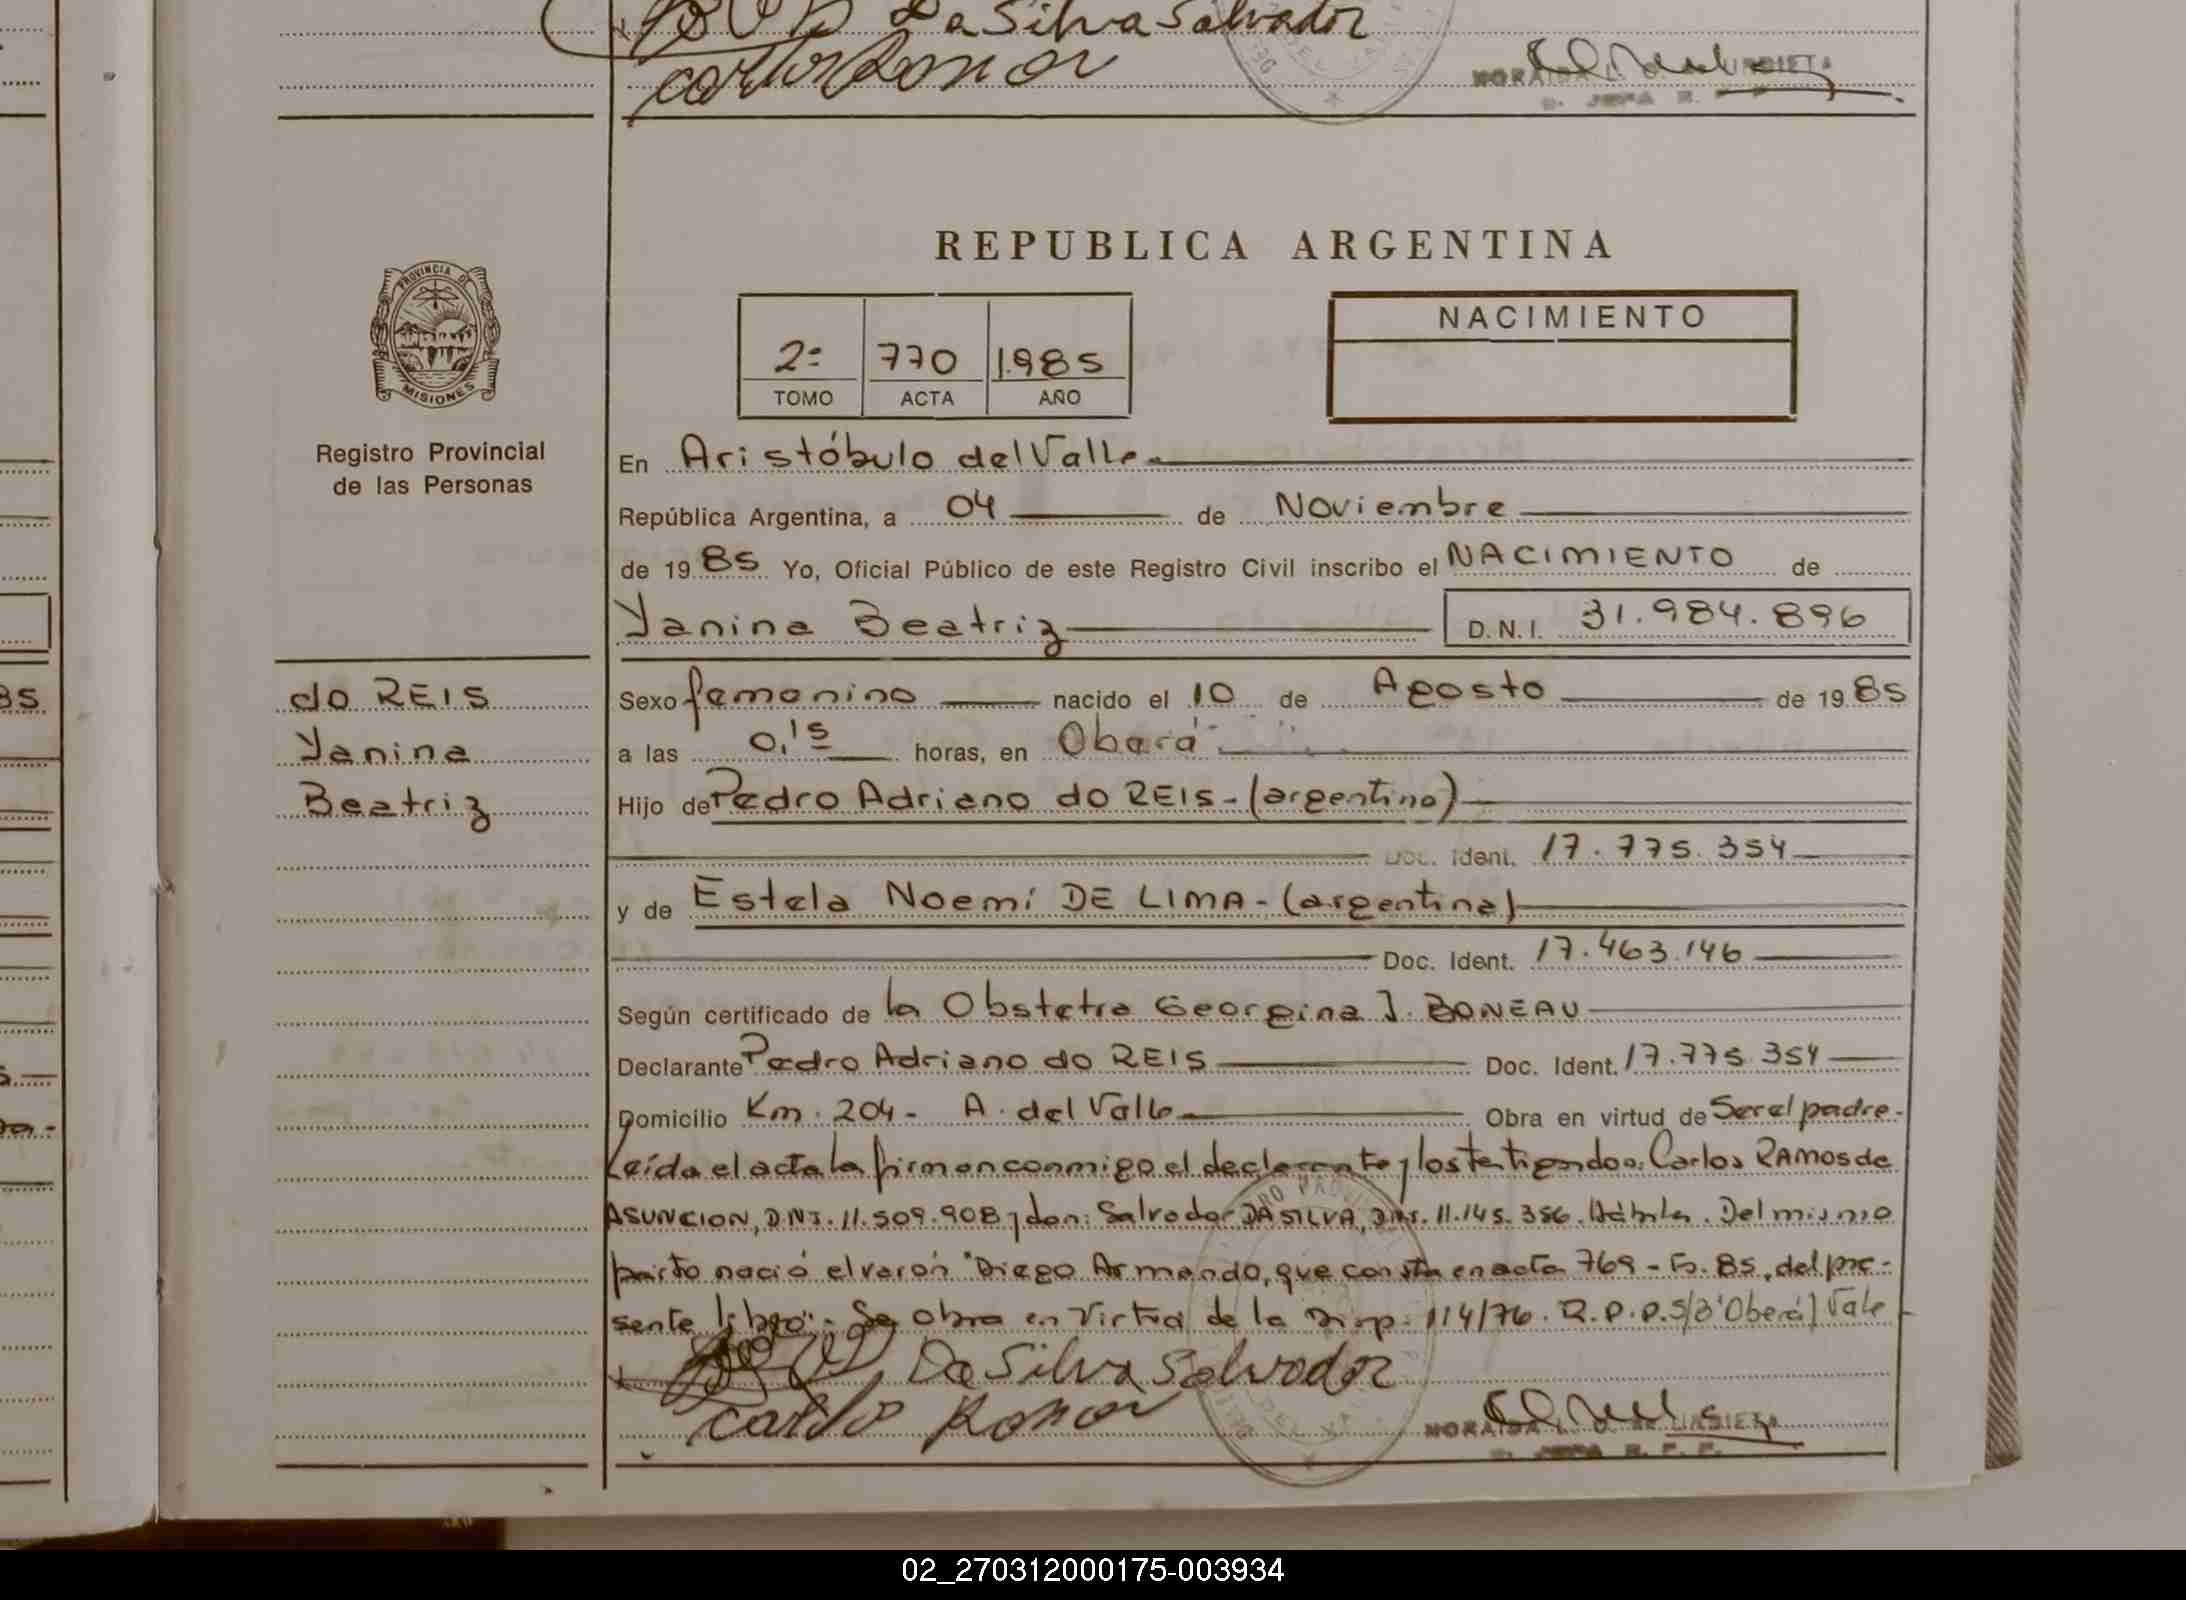 Da Silva Salvador
Carlos Ramos
REPUBLICA ARGENTINA
PROVINCIA DE
MISIONES
Registro Provincial
de las Personas
2º 770 1.985
TOMO ACTA AÑO
NACIMIENTO
En Aristóbulo del Valle
República Argentina, a 04 de Noviembre
de 1985 Yo, Oficial Público de este Registro Civil inscribo el NACIMIENTO de
Yanina Beatriz D.N.I. 31.984.896
do REIS
Yanina
Beatriz
Sexo femenino nacido el 10 de Agosto de 1985
a las 0,15 horas, en Oberá
Hijo de Pedro Adriano do REIS-(argentino)
Doc. Ident. 17.775.354
y de Estela Noemí DE LIMA-(argentina)
Doc. Ident. 17.463.146
Según certificado de la Obstetra Georgina J. BONEAU
Declarante Pedro Adriano do REIS Doc. Ident. 17.775.354
Domicilio Km. 204- A. del Valle Obra en virtud de Ser el padre.
Leída el acta la firman conmigo el declarante y los testigos don: Carlos RAMOS de
ASUNCION, DNI. 11.509.908 y don: Salvador DA SILVA, DNI. 11.145.356. Hábiles. Del mismo
parto nació el varón "Diego Armando, que consta en acta 769-Fo. 85, del pre-
sente libro".- Se obra en virtud de la Disp. 114/76. R.P.P. S/B "Oberá" Vale
Da Silva Salvador
Carlos Ramos
02_270312000175-003934